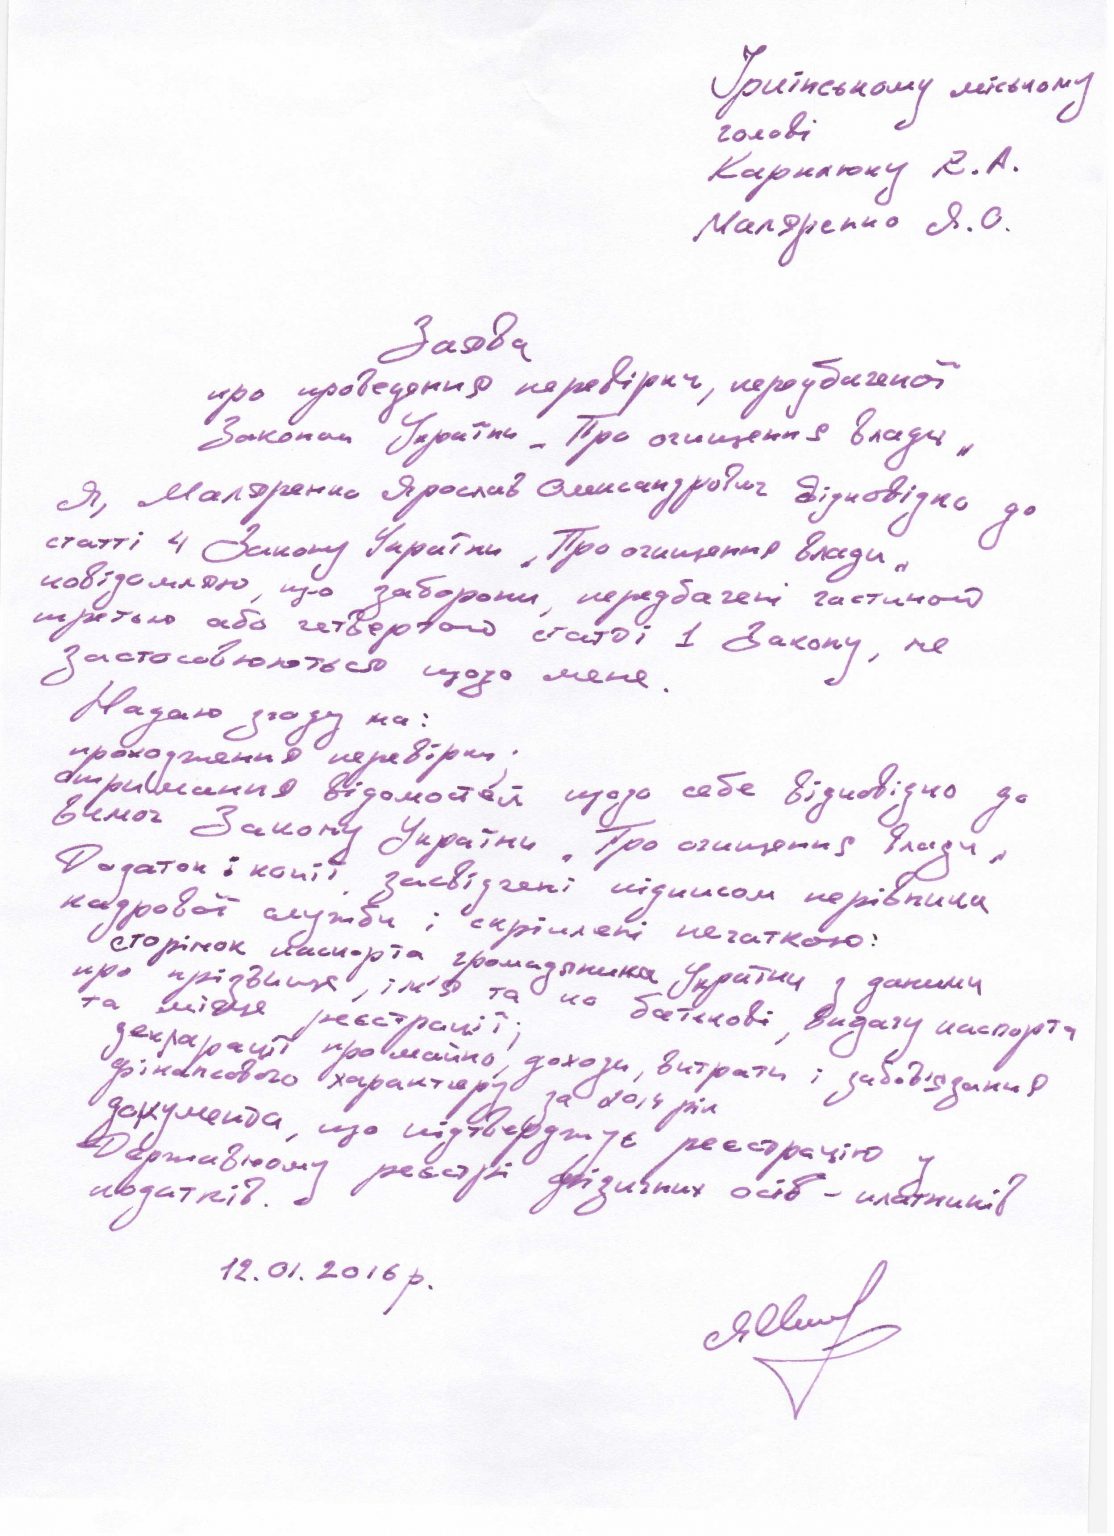 Ірпінському міському
голові
Карплюку В.А.
Маляренко Я.О.
Заява
про проведення перевірки, передбаченої
Законом України „Про очищення влади„
Я, Маляренко Ярослав Олександрович відповідно до
статті 4 Закону України „Про очищення влади„
повідомляю, що заборони, передбачені частиною
третью або четвертою статті 1 Закону, не
застосовюються щодо мене.
Надаю згоду на:
проходження перевірки;
отримання відомостей щодо себе відповідно до
вимог Закону України „Про очищення влади„
Додаток: копії, засвідчені підписом керівника
кадрової служби і скріплені печаткою:
сторінок паспорта громадянина України з даними
про прізвище, ім'я та по батькові, видачу паспорта
та місце реєстрації;
декларації про майно, доходи, витрати і забов'язання
фінансового характеру за 2014 рік
документа, що підтверджує реєстрацію у
Державному реєстрі фізичних осіб - платників
податків.
12.01.2016р.